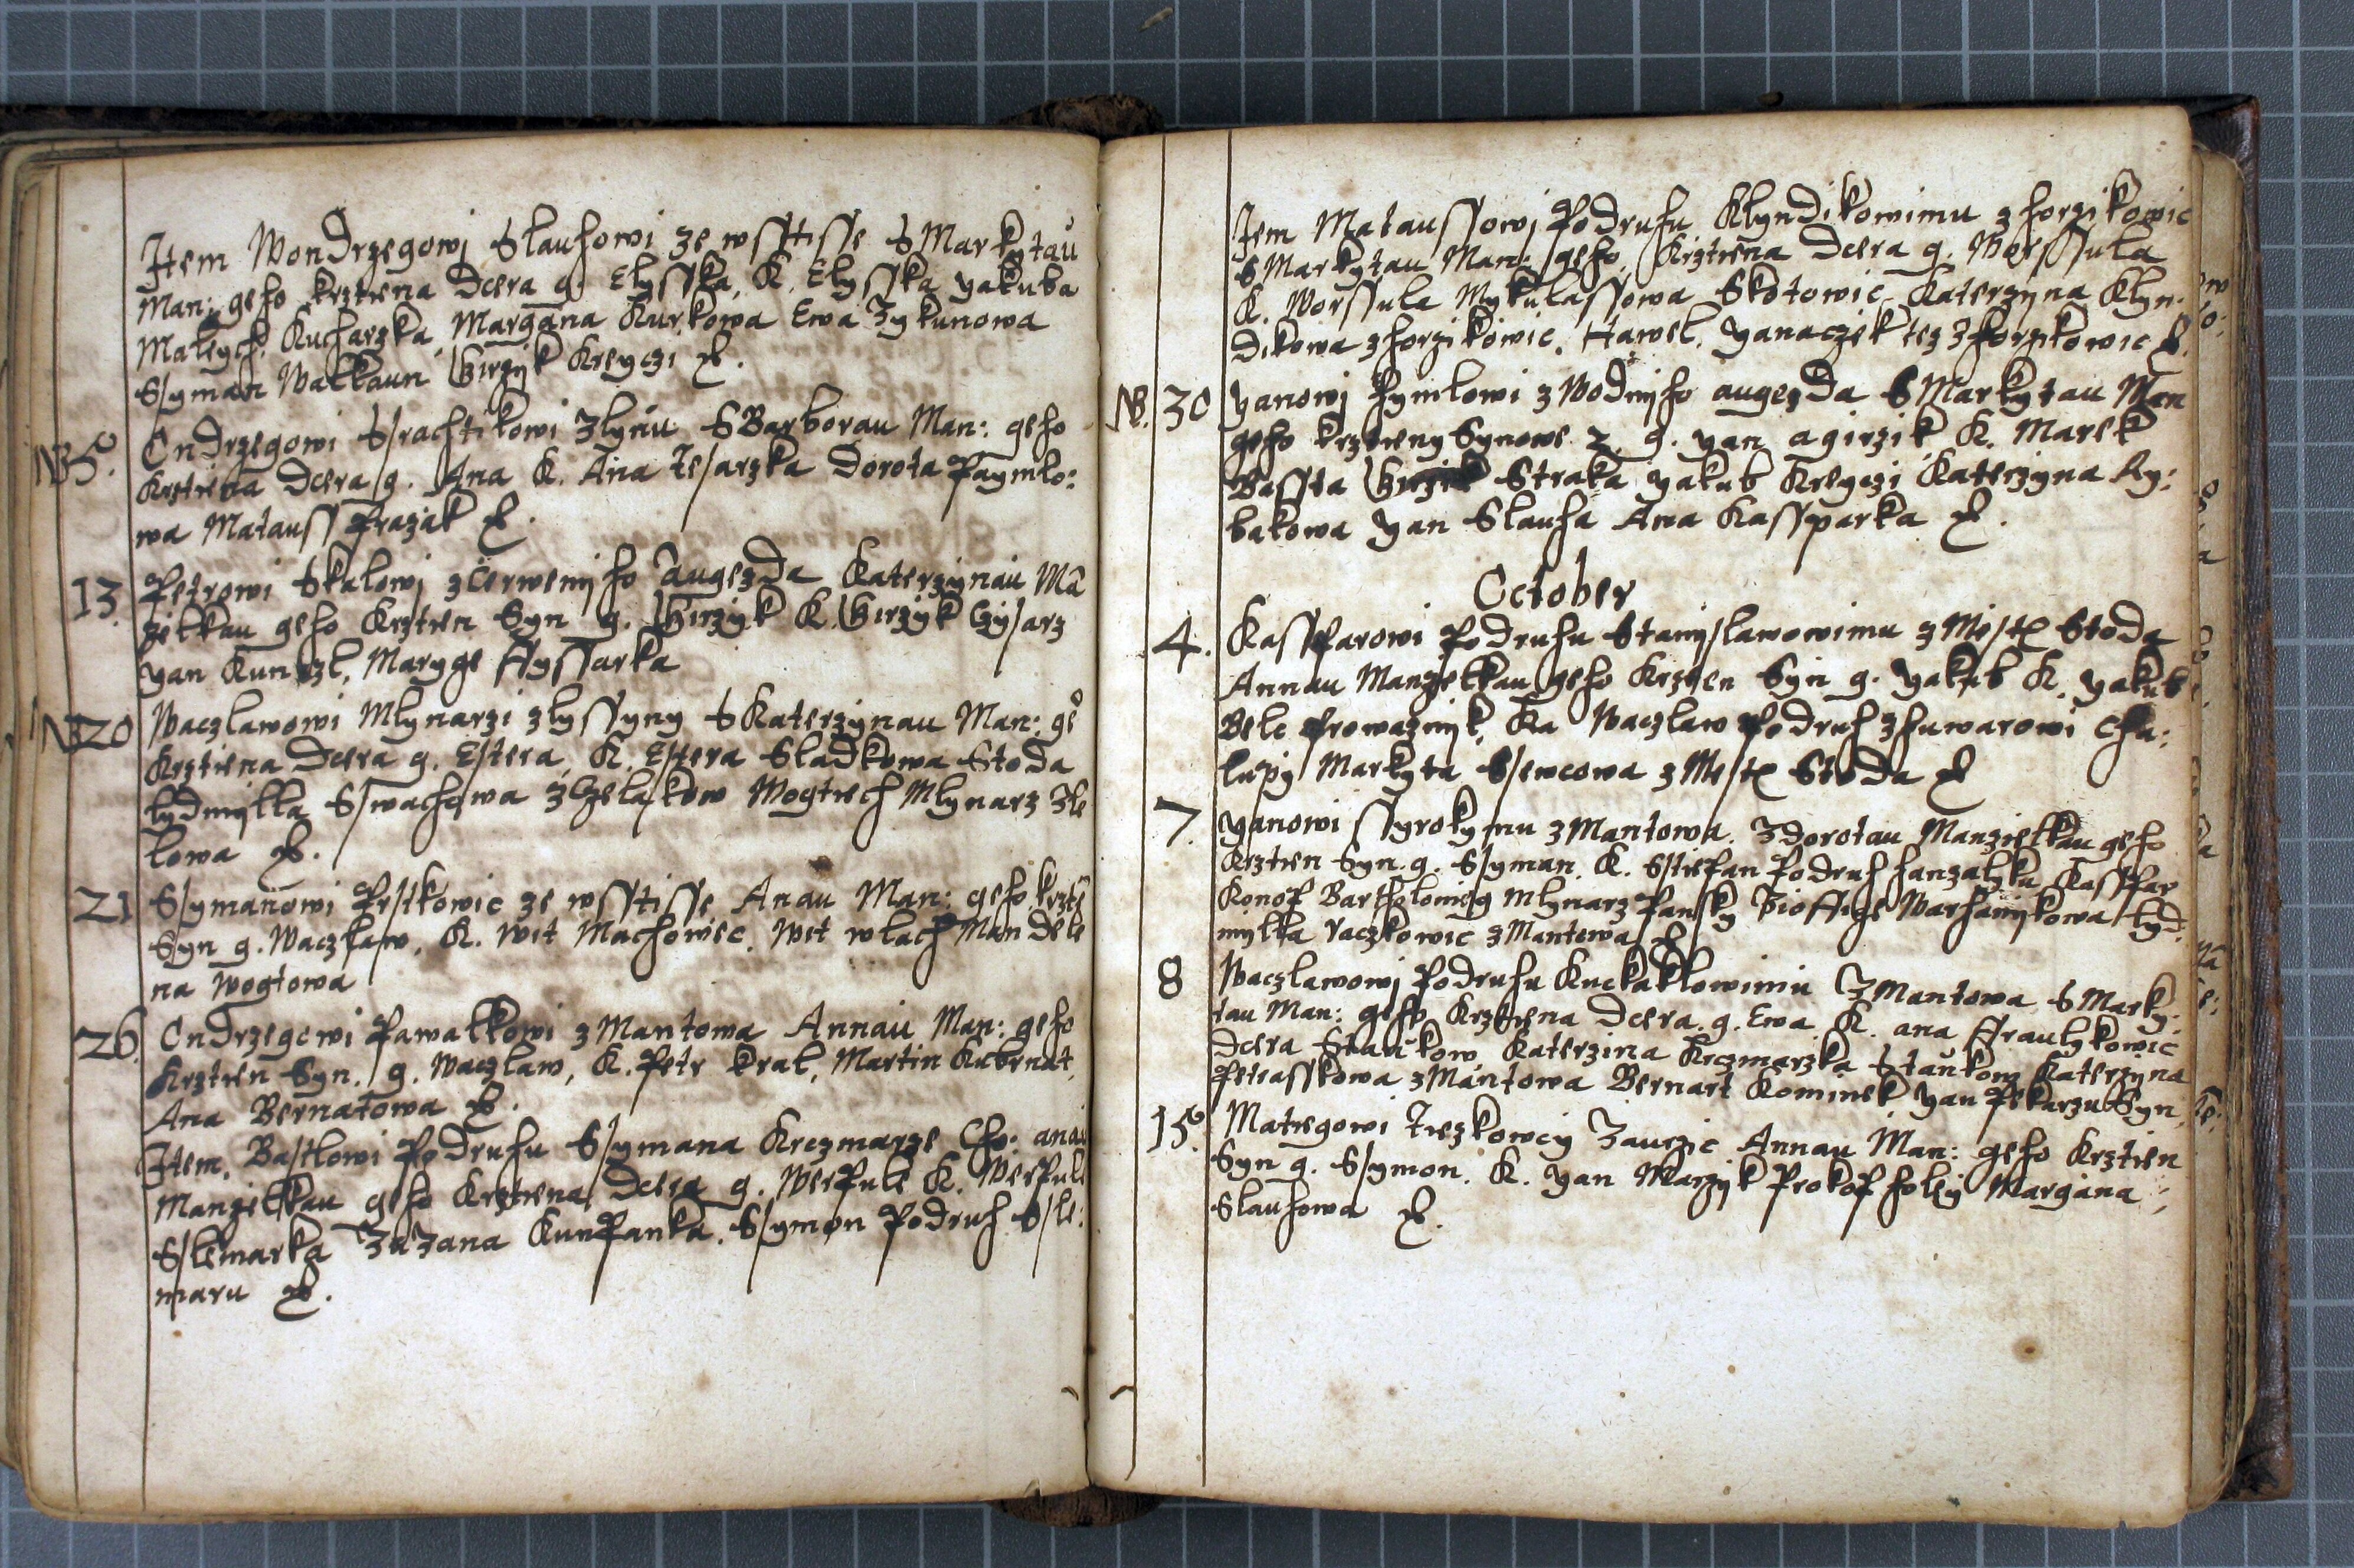 Item Wondrzegowj Slauhowi ze wsstisse S Markytau
Man: geho krztiena Dcera g. Elysska, K. Elysska yakuba
Maleych Kucharzka Margana Kurkowa Ewa Zykunowa
Ssyman Watkaun Girzyk Kreyczi &.
NB 5. Ondrzegowi Ssrachtikowi Zlynu S Barborau Man: geho
Krztiena Dcera g. Ana K. Ana Tesarzka Dorota Paymlo:
wa Matauss Prazak &.
13. Petrowi Skalowj z Cerweniho augezda Katerzynau Man
zelkau geho Krztien Syn g. Girzyk K. Girzyk Czysarz
yan Kunczl, Maryge Ryssarka
NB 20 Waczlawowi Mlynarzi zlyssyny S Katerzynau Man: geo
Krztiena Dcera g. Estera K. Estera Sladkowa Stoda
lydmylla Sswachowa z Czelakow Wogtiech Mlynarz Zle
lowa &.
21 Ssymanowi Prstkowic ze wsstisse Anau Man: geho krzte
Syn g. Waczlaw, K. Wit Machowec, Wit wlach Mandele
na Wogtowa
26. Ondrzegowi Pawalkowi z Mantowa Annau Man: geho
Krztien Syn. g. Waczlaw, K. Petr kral, Martin Kubrnat,
Ana Bernatowa &.
Item. Bastlowi Podruhu Ssymana Krczmarze Cho: anau
Manzielkau geho Krztiena Dcera g. Werpule K. Werpule
Sslemarka Zuzana Kunpanka. Ssymon Podruh Ssle:
maru &.
Item Mataussowj Podruhu Klyndikowimu z horzikowic
S Markytau Man: geho Krztiena Dcera g. Worssula
K. Worssula Mykulassowa Skotowic Katerzyna Klyn:
dikowa z horzikowic. Hawel yanaczek tez z horzikowic &.
NB. 30 yanowj hymlowi z Wodnyho augezda S Markytau Man
geho krztieny Synowe 2. g. yan a girzik K. Marek
Bassta Straka yakub Kreyczi Katerzyna Ry:
bakowa yan Slauha Ana Kassparka &.
October
4. Kassparowi Podruhu Stanyslawowimu z Miesta Stoda
Annau Manzelkau geho Krztien Syn g. yakub K. yakub
Bele Prowaznyk, Ka Waczlaw Podruh z huwarowi Cha:
lupy Markyta Ssewcowa z Miesta Stoda &
7. yanowi Ssyrokymu z Mantowa. Z dorotau Manzielkau geho
Krztien Syn g. Ssyman. K. Sstiepan Podruh hanzalyku Kasspar
Konop Bartholomieg Mlynarz Pansky Zioffige Warhanykowa lyd:
mylla raczkowic z Mantowa &
8 Waczlawowj Podruhu Kuckaklowimu Z Mantowa S Marky:
tau Man: geho Krztiena Dcera g. Ewa K. ana ffraulykowic
Dcera Stankow Katerzina Krczmarzka Stankow Katerzyna
Petrasskowa z Mantowa Bernart Kominek yan Pekarzu Syn
15. Matiegowi Trczkowey Zaurzic Annau Man: geho Krztien
Syn g. Ssymon. K. yan Marzyk Prokop holey Margana
Slauhowa &.